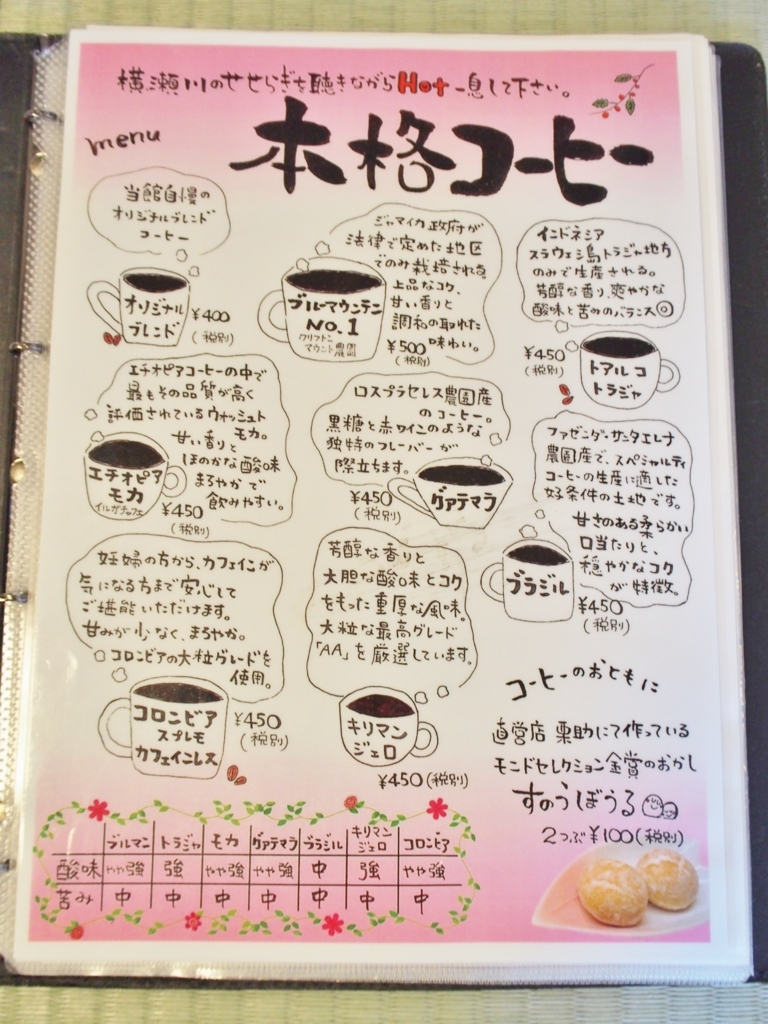 横瀬川のせせらぎを聴きながらHot一息して下さい。
menu
本格コーヒー
当館自慢の
オリジナルブレンド
コーヒー
オリジナル
ブレンド
¥400
(税別)
ジャマイカ政府が
法律で定めた地区
でのみ栽培される。
上品なコク、
甘い香りと
調和の取れた
味わい。
ブルーマウンテン
NO.1
クリフトン
マウント農園
¥500
(税別)
インドネシア
スラウェシ島トラジャ地方
のみで生産される。
芳醇な香り、爽やかな
酸味と苦みのバランス◎
¥450
(税別)
トアルコ
トラジャ
エチオピアコーヒーの中で
最もその品質が高く
評価されているウォッシュト
モカ。
甘い香りと
ほのかな酸味
まろやかで
飲みやすい。
エチオピア
モカ
イルガチャフェ
¥450
(税別)
ロスプラセレス農園産
のコーヒー。
黒糖と赤ワインのような
独特のフレーバーが
際立ちます。
¥450
(税別)
グァテマラ
ファゼンダ・サンタエレナ
農園産で、スペシャルティ
コーヒーの生産に適した
好条件の土地です。
甘さのある柔らかい
口当たりと、
穏やかなコク
が特徴。
ブラジル
¥450
(税別)
妊婦の方から、カフェインが
気になる方まで安心して
ご堪能いただけます。
甘みが少なく、まろやか。
コロンビアの大粒グレードを
使用。
コロンビア
スプレモ
カフェインレス
¥450
(税別)
芳醇な香りと
大胆な酸味とコク
をもった重厚な風味。
大粒な最高グレード
「AA」を厳選しています。
キリマン
ジェロ
¥450(税別)
コーヒーのおともに
直営店 栗助にて作っている
モンドセレクション金賞のおかし
すのうぼうる
2つぶ¥100(税別)
ブルマン トラジャ モカ グァテマラ ブラジル キリマンジェロ コロンビア
酸味 やや強 強 やや強 やや強 中 強 やや強
苦み 中 中 中 中 中 中 中